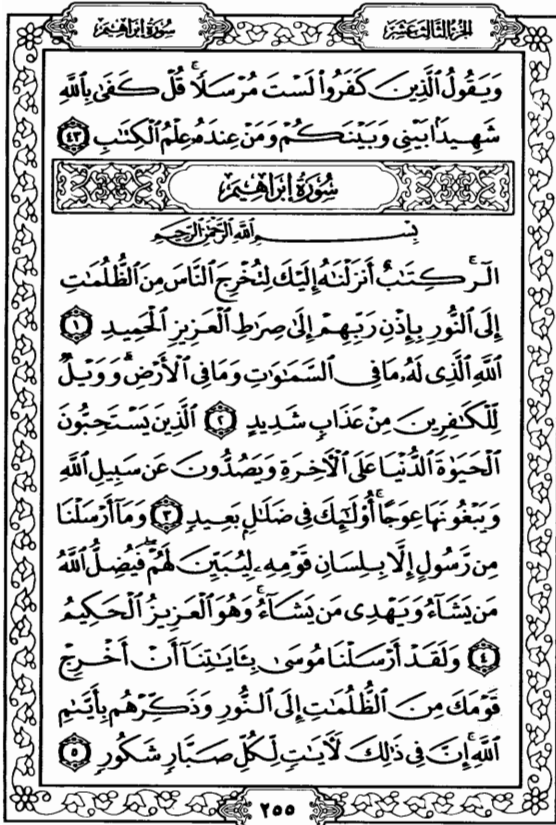 سُورَةُ إِبْرَاهِيمَ
الجُزْءُ الثَّالِثَ عَشَرَ
وَيَقُولُ ٱلَّذِينَ كَفَرُوا۟ لَسْتَ مُرْسَلًا ۚ قُلْ كَفَىٰ بِٱللَّهِ
شَهِيدًۢا بَيْنِى وَبَيْنَكُمْ وَمَنْ عِندَهُۥ عِلْمُ ٱلْكِتَٰبِ ٤٣
سُورَةُ إِبْرَاهِيمَ
بِسْمِ ٱللَّهِ ٱلرَّحْمَٰنِ ٱلرَّحِيمِ
الٓر ۚ كِتَٰبٌ أَنزَلْنَٰهُ إِلَيْكَ لِتُخْرِجَ ٱلنَّاسَ مِنَ ٱلظُّلُمَٰتِ
إِلَى ٱلنُّورِ بِإِذْنِ رَبِّهِمْ إِلَىٰ صِرَٰطِ ٱلْعَزِيزِ ٱلْحَمِيدِ ١
ٱللَّهِ ٱلَّذِى لَهُۥ مَا فِى ٱلسَّمَٰوَٰتِ وَمَا فِى ٱلْأَرْضِ ۗ وَوَيْلٌ
لِّلْكَٰفِرِينَ مِنْ عَذَابٍ شَدِيدٍ ٢ ٱلَّذِينَ يَسْتَحِبُّونَ
ٱلْحَيَوٰةَ ٱلدُّنْيَا عَلَى ٱلْءَاخِرَةِ وَيَصُدُّونَ عَن سَبِيلِ ٱللَّهِ
وَيَبْغُونَهَا عِوَجًا ۚ أُو۟لَٰٓئِكَ فِى ضَلَٰلٍۭ بَعِيدٍ ٣ وَمَآ أَرْسَلْنَا
مِن رَّسُولٍ إِلَّا بِلِسَانِ قَوْمِهِۦ لِيُبَيِّنَ لَهُمْ ۖ فَيُضِلُّ ٱللَّهُ
مَن يَشَآءُ وَيَهْدِى مَن يَشَآءُ ۚ وَهُوَ ٱلْعَزِيزُ ٱلْحَكِيمُ
٤ وَلَقَدْ أَرْسَلْنَا مُوسَىٰ بِـَٔايَٰتِنَآ أَنْ أَخْرِجْ
قَوْمَكَ مِنَ ٱلظُّلُمَٰتِ إِلَى ٱلنُّورِ وَذَكِّرْهُم بِأَيَّىٰمِ
ٱللَّهِ ۚ إِنَّ فِى ذَٰلِكَ لَءَايَٰتٍ لِّكُلِّ صَبَّارٍ شَكُورٍ ٥
٢٥٥